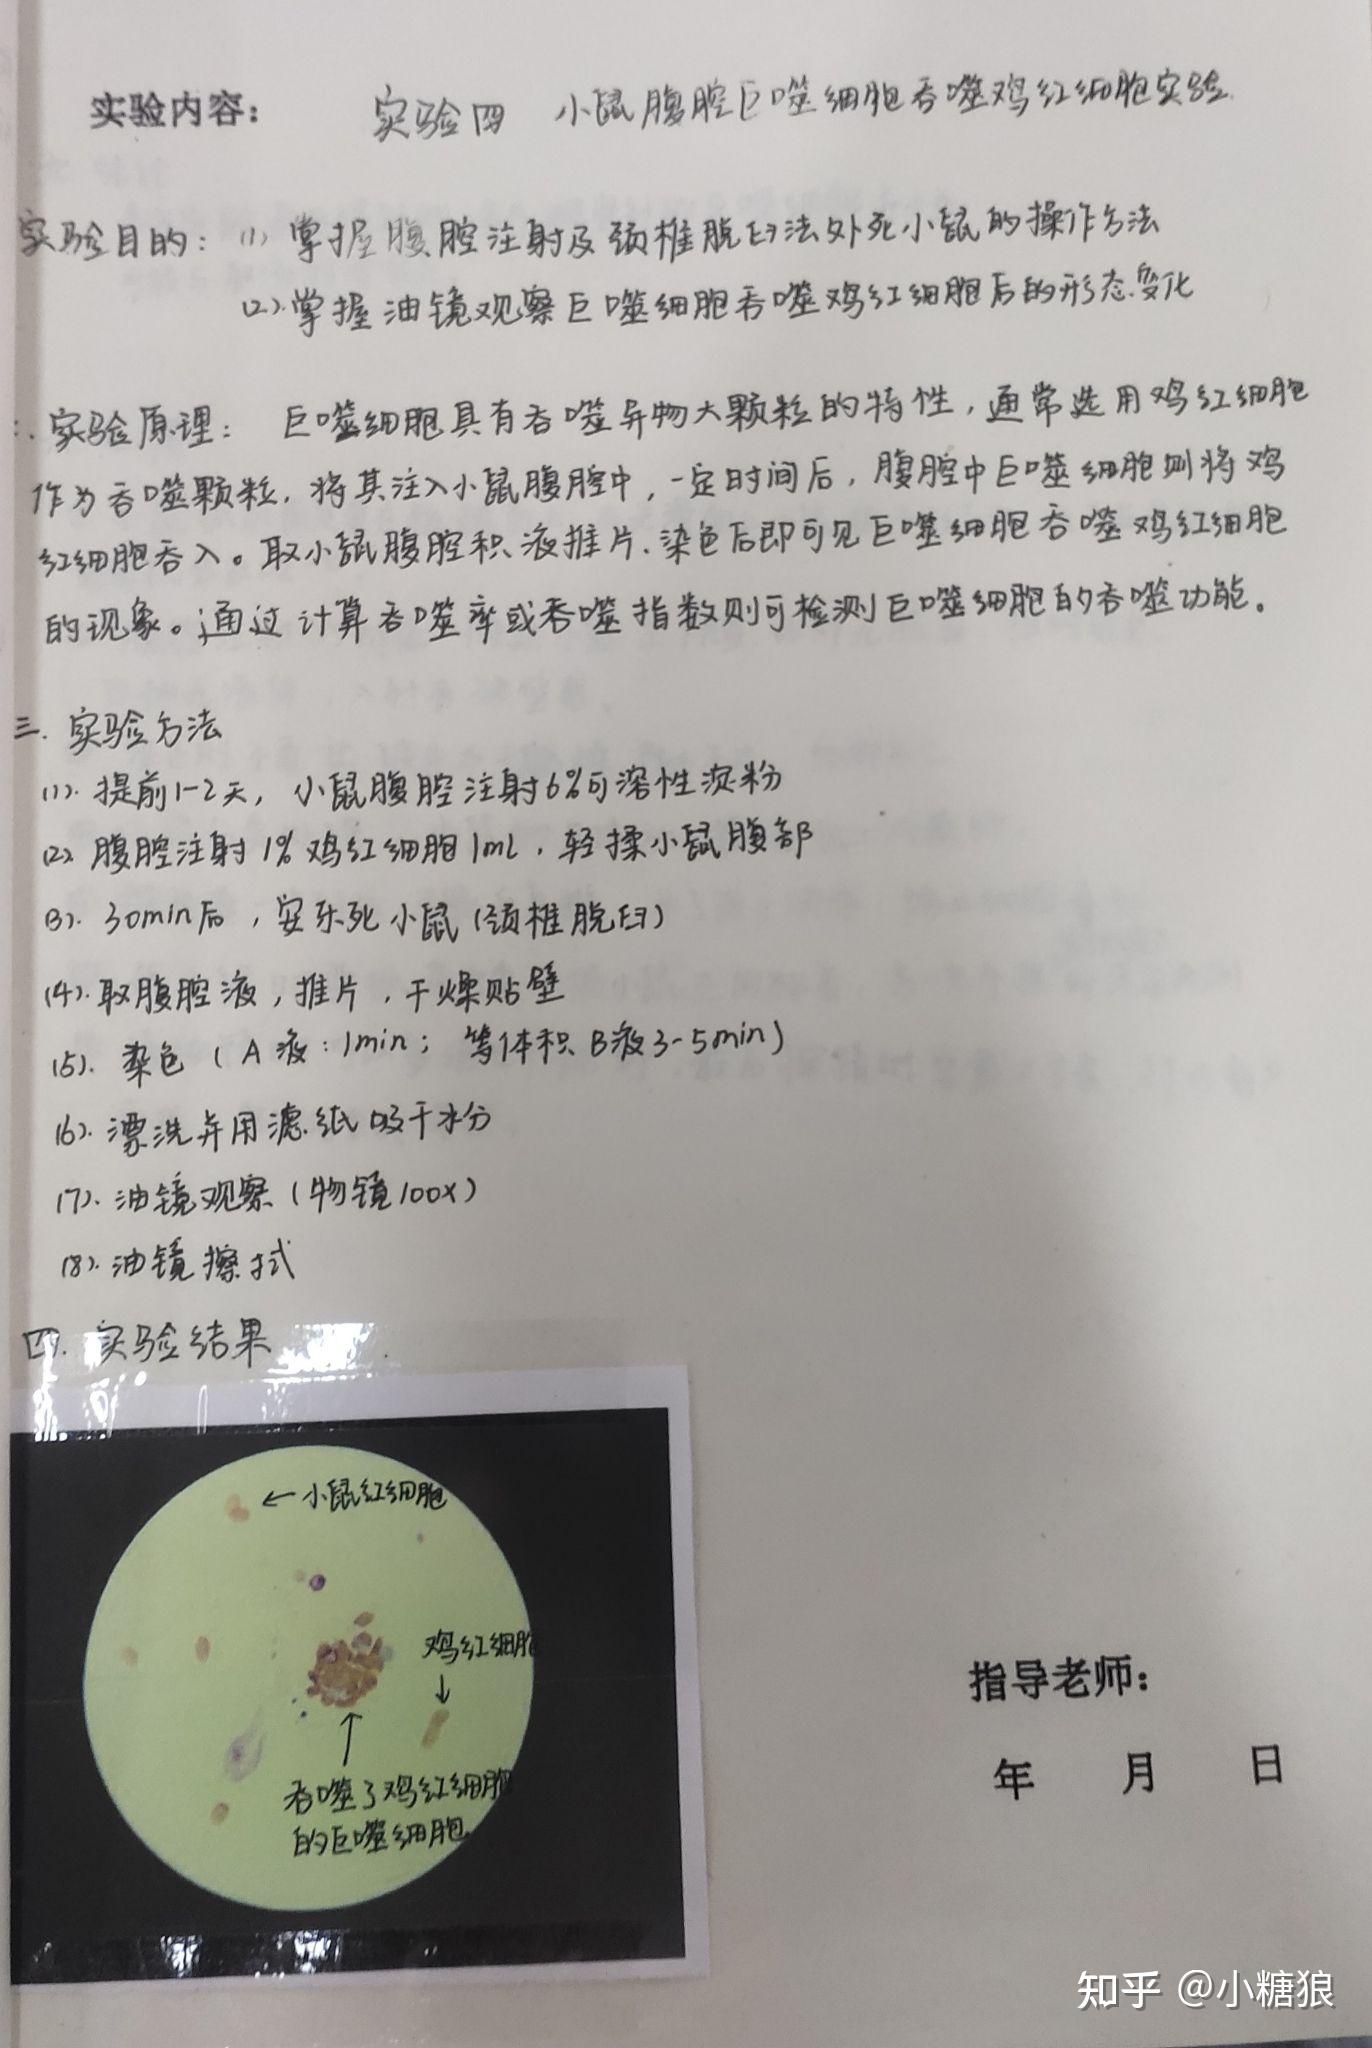 实验内容： 实验四 小鼠腹腔巨噬细胞吞噬鸡红细胞实验
实验目的：(1) 掌握腹腔注射及颈椎脱臼法处死小鼠的操作方法
(2).掌握油镜观察巨噬细胞吞噬鸡红细胞后的形态变化
实验原理： 巨噬细胞具有吞噬异物大颗粒的特性，通常选用鸡红细胞
作为吞噬颗粒，将其注入小鼠腹腔中，一定时间后，腹腔中巨噬细胞则将鸡
红细胞吞入。取小鼠腹腔积液推片、染色后即可见巨噬细胞吞噬鸡红细胞
的现象。通过计算吞噬率或吞噬指数则可检测巨噬细胞的吞噬功能。
三. 实验方法
(1). 提前1-2天，小鼠腹腔注射6%可溶性淀粉
(2) 腹腔注射1%鸡红细胞1mL，轻揉小鼠腹部
(3). 30min后，安乐死小鼠(颈椎脱臼)
(4). 取腹腔液，推片，干燥贴壁
(5). 染色(A液：1min； 等体积B液3-5min)
(6). 漂洗并用滤纸吸干水分
(7). 油镜观察(物镜100X)
(8). 油镜擦拭
四. 实验结果
←小鼠红细胞
鸡红细胞
↓
↑
吞噬了鸡红细胞
的巨噬细胞
指导老师：
年 月 日
知乎 @小糖狼